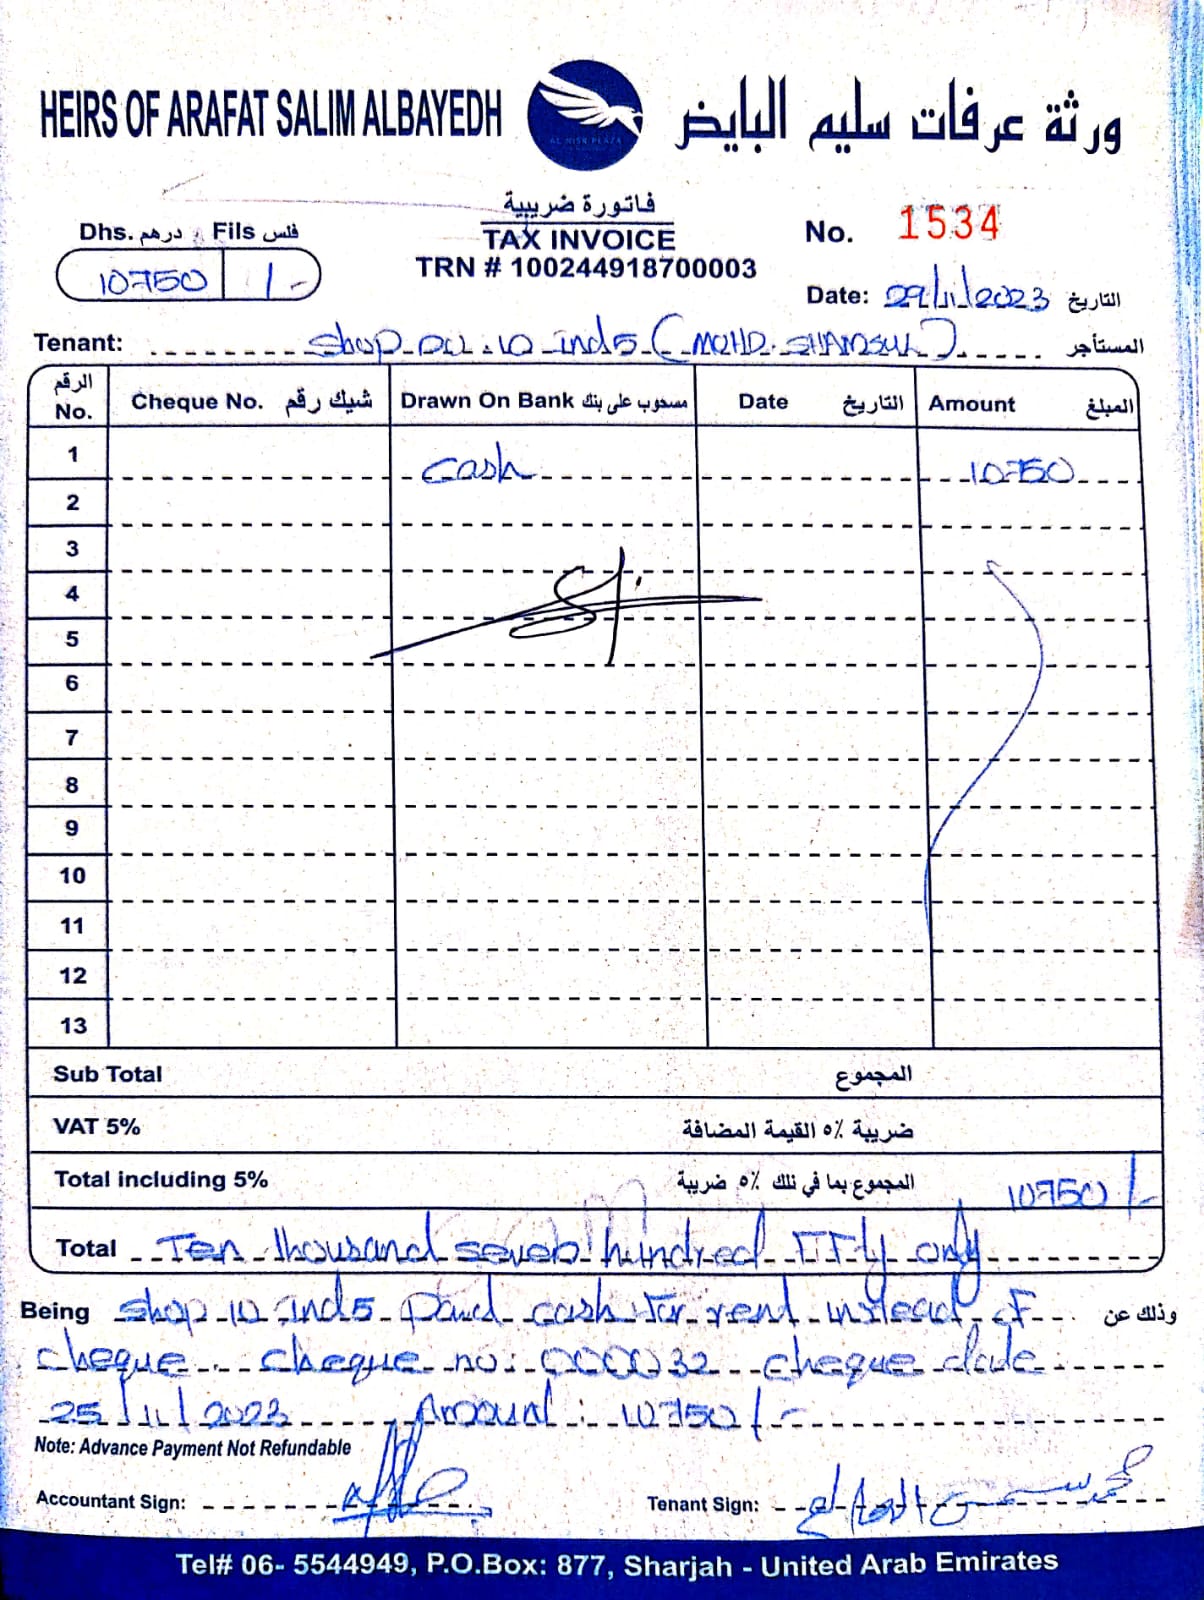 HEIRS OF ARAFAT SALIM ALBAYEDH
AL NISR PLAZA
ورثة عرفات سليم البايض
فاتورة ضريبية
TAX INVOICE
TRN # 100244918700003
Dhs. درهم Fils فلس
10750 /-
No. 1534
Date: 29/11/2023 التاريخ
Tenant: shop no. 10 ind 5 (MOHD. SHAMSUL) المستأجر
الرقم No. Cheque No. شيك رقم Drawn On Bank مسحوب على بنك Date التاريخ Amount المبلغ
1 cash 10750
2
3
4
5
6
7
8
9
10
11
12
13
Sub Total المجموع
VAT 5% ضريبة ٥٪ القيمة المضافة
Total including 5% المجموع بما في ذلك ٥٪ ضريبة 10750/-
Total Ten thousand seven hundred fifty only
Being shop 10 ind 5 paid cash for rent instead of وذلك عن
cheque cheque no: 000032 cheque date
25/11/2023 Amount: 10750/-
Note: Advance Payment Not Refundable
Accountant Sign: Tenant Sign: محمد شمس
Tel# 06- 5544949, P.O.Box: 877, Sharjah - United Arab Emirates